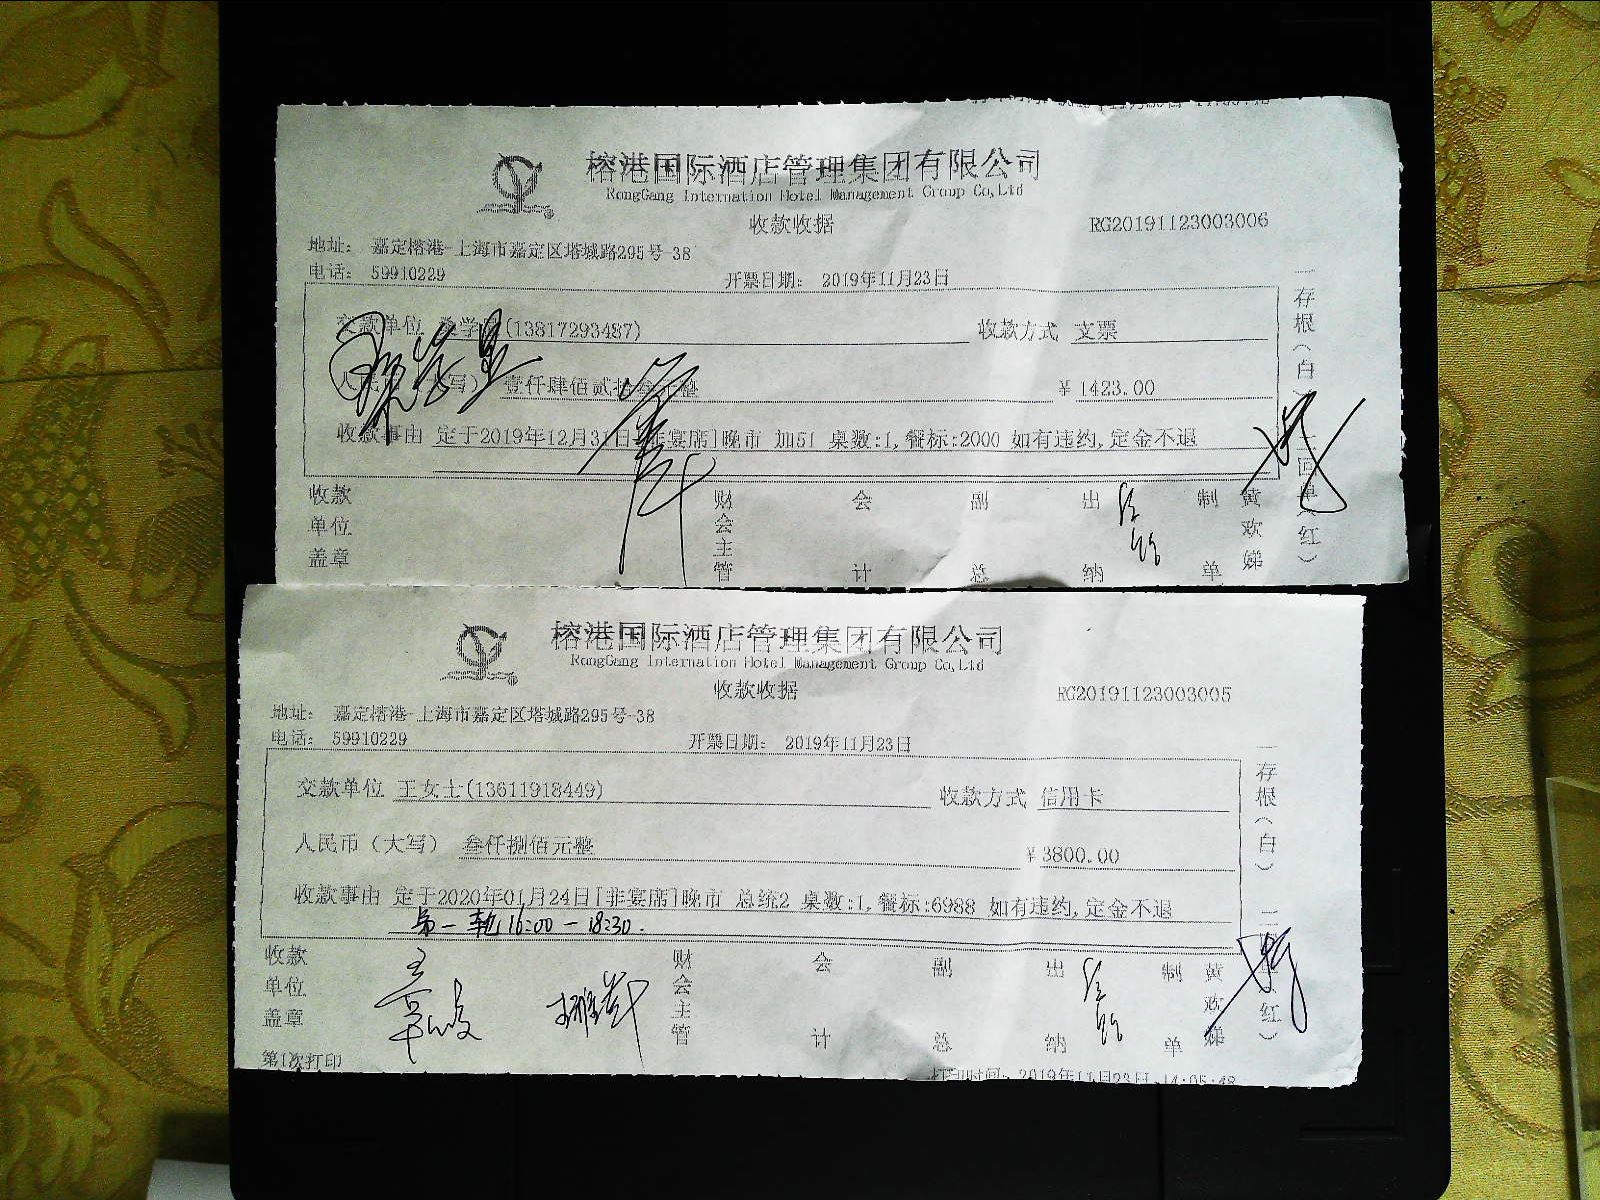 榕港国际酒店管理集团有限公司
RongGang Internation Hotel Management Group Co,Ltd
收款收据
RG20191123003006
地址： 嘉定榕港-上海市嘉定区塔城路295号-38
电话： 59910229
开票日期： 2019年11月23日
交款单位 学(13817293487)
收款方式 支票
人民 （大写） 壹仟肆佰贰拾叁元整
￥1423.00
收款事由 定于2019年12月31日[非宴席]晚市 加51 桌数:1,餐标:2000 如有违约,定金不退
收款单位盖章
财会主管
会计
副总
出纳
制单
黄欢娣
一存根（白）
二回单（红）
榕港国际酒店管理集团有限公司
RongGang Internation Hotel Management Group Co,Ltd
收款收据
RG20191123003005
地址： 嘉定榕港-上海市嘉定区塔城路295号-38
电话： 59910229
开票日期： 2019年11月23日
交款单位 王女士(13611918449)
收款方式 信用卡
人民币（大写） 叁仟捌佰元整
￥3800.00
收款事由 定于2020年01月24日[非宴席]晚市 总统2 桌数:1,餐标:6988 如有违约,定金不退
第一轮 16:00-18:30.
收款单位盖章
财会主管
会计
副总
出纳
制单
黄欢娣
一存根（白）
二 （红）
第1次打印
打印时间：2019年11月23日 14:05:48